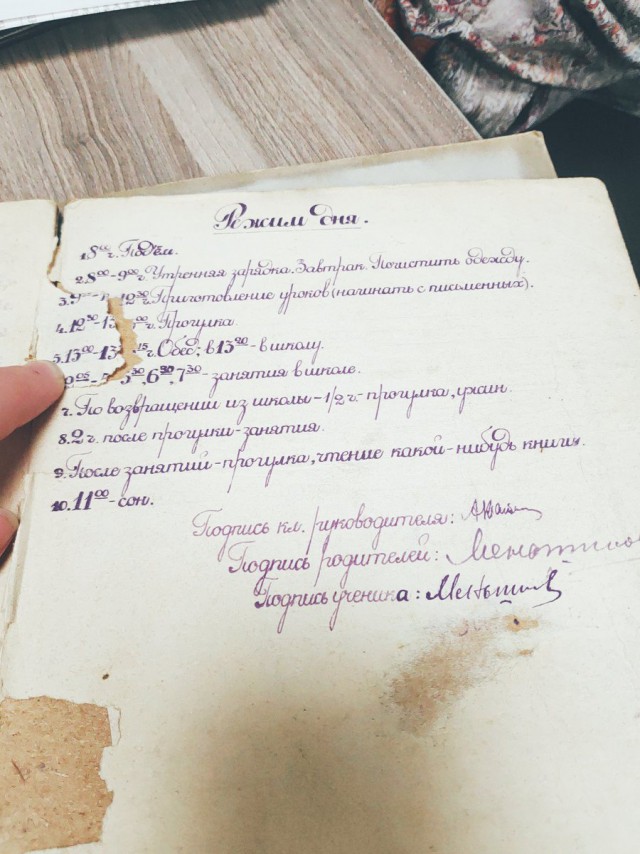 Режим дня.
1. 8⁰⁰ ч. Подъём.
2. 8⁰⁰-9⁰⁰ ч. Утренняя зарядка. Завтрак. Почистить одежду.
3. 12³⁰ ч. Приготовление уроков (начинать с письменных).
4. 12³⁰-13⁰⁰ ч. Прогулка.
5. 13⁰⁰-13¹⁵ ч. Обед; в 13²⁰ - в школу.
5³⁰, 6³⁰, 7³⁰ - занятия в школе.
7. По возвращении из школы - 1/2 ч. - прогулка, ужин.
8. 2 ч. после прогулки - занятия.
9. После занятий - прогулка, чтение какой-нибудь книги.
10. 11⁰⁰ - сон.
Подпись кл. руководителя:
Подпись родителей:
Подпись ученика: